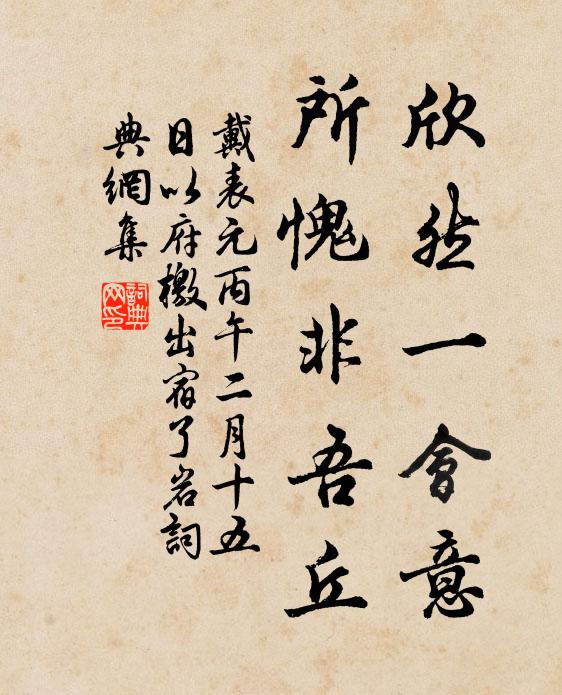 欣然一會意
所愧非吾丘
戴表元丙午二月十五
日以府檄出宿了岩詞
典網集
詞典網印